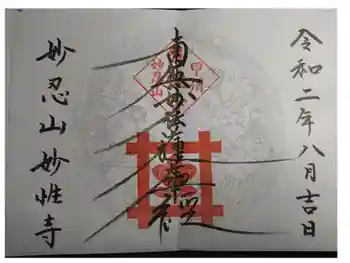 令和二年八月吉日
南無妙法蓮華経
妙忍山妙性寺
甲州
妙忍山